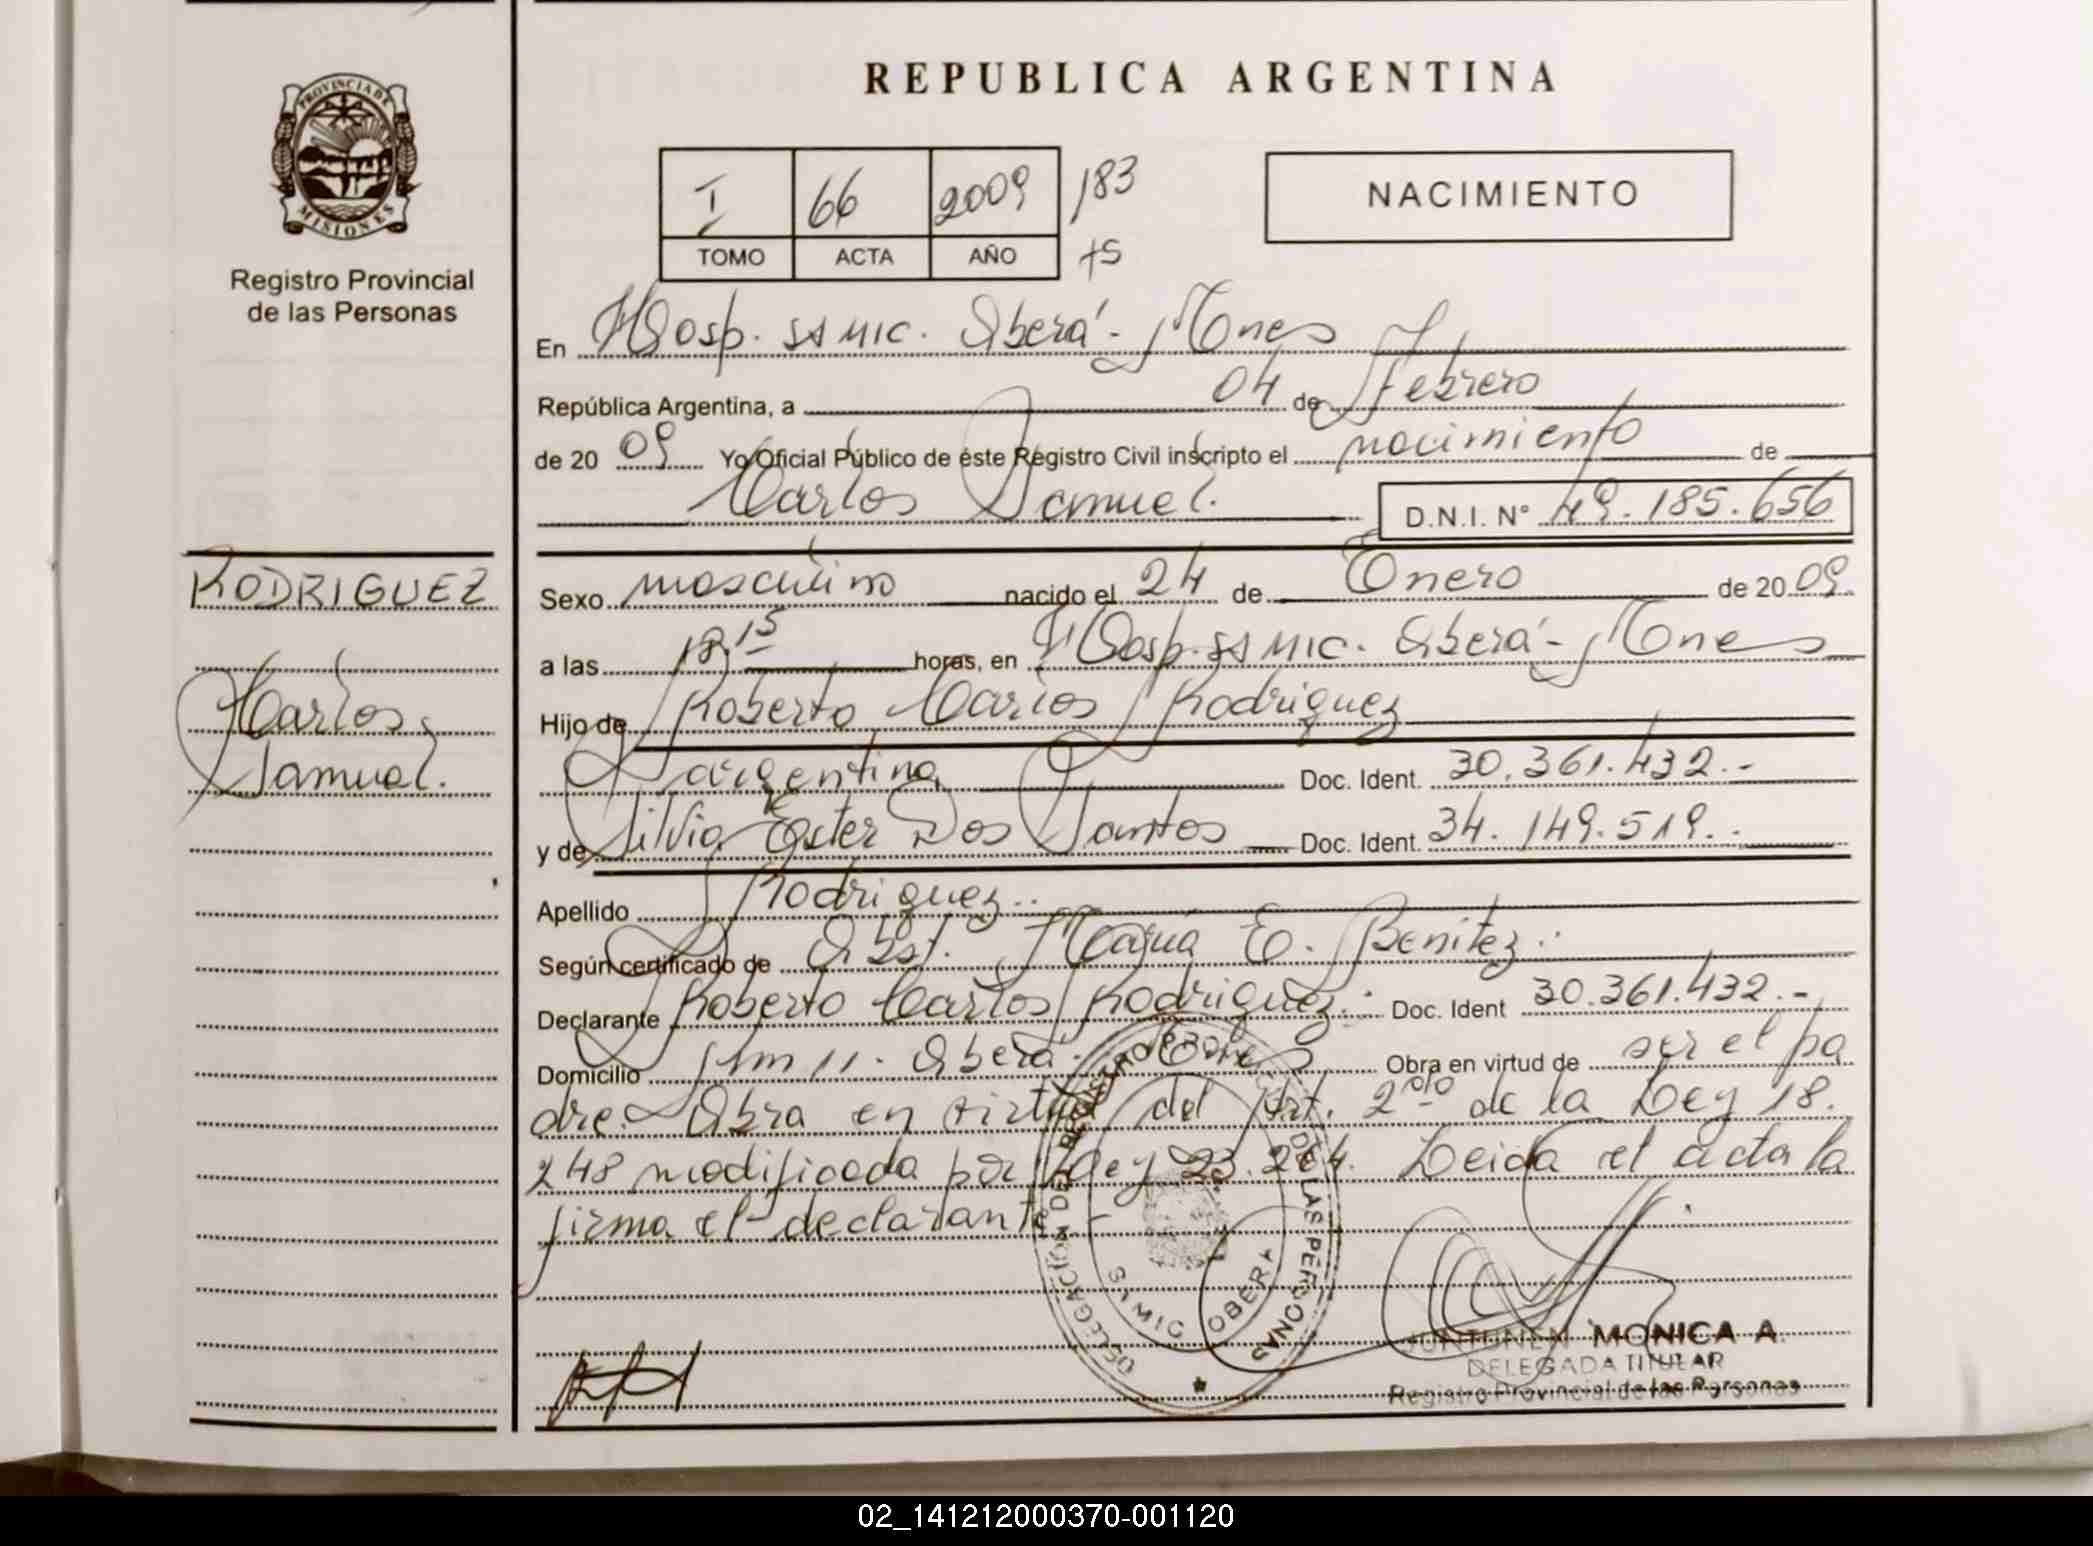 REPUBLICA ARGENTINA
PROVINCIA DE MISIONES
Registro Provincial
de las Personas
I 66 2009 /83
TOMO ACTA AÑO +S
NACIMIENTO
En Hosp. SAMIC. Oberá - Mones
República Argentina, a 04 de Febrero
de 20 09 Yo Oficial Público de éste Registro Civil inscripto el nacimiento de
Carlos Samuel. D.N.I. N° 49.185.656
RODRIGUEZ
Carlos
Samuel.
Sexo masculino nacido el 24 de Enero de 20 09.
a las 18,15 horas, en Hosp. SAMIC. Oberá - Mones
Hijo de Roberto Carlos Rodriguez
argentina Doc. Ident. 30.361.432.-
y de Silvia Ester Dos Santos Doc. Ident. 34.149.519.-
Apellido Rodriguez..
Según certificado de Obst. E. Benitez.
Declarante Roberto Carlos Rodriguez. Doc. Ident 30.361.432.-
Domicilio Km 11. Oberá. Mones Obra en virtud de ser el pa
dre. Obra en virtud del Art. 2º de la Ley 18.
248 modificada por Ley 23.264. Leida el acta la
firma el declarante.-
DELEGACION DEL REGISTRO PROVINCIAL DE LAS PERSONAS
SAMIC OBERA
JUNTUNEN MONICA A.
DELEGADA TITULAR
Registro Provincial de las Personas
02_141212000370-001120